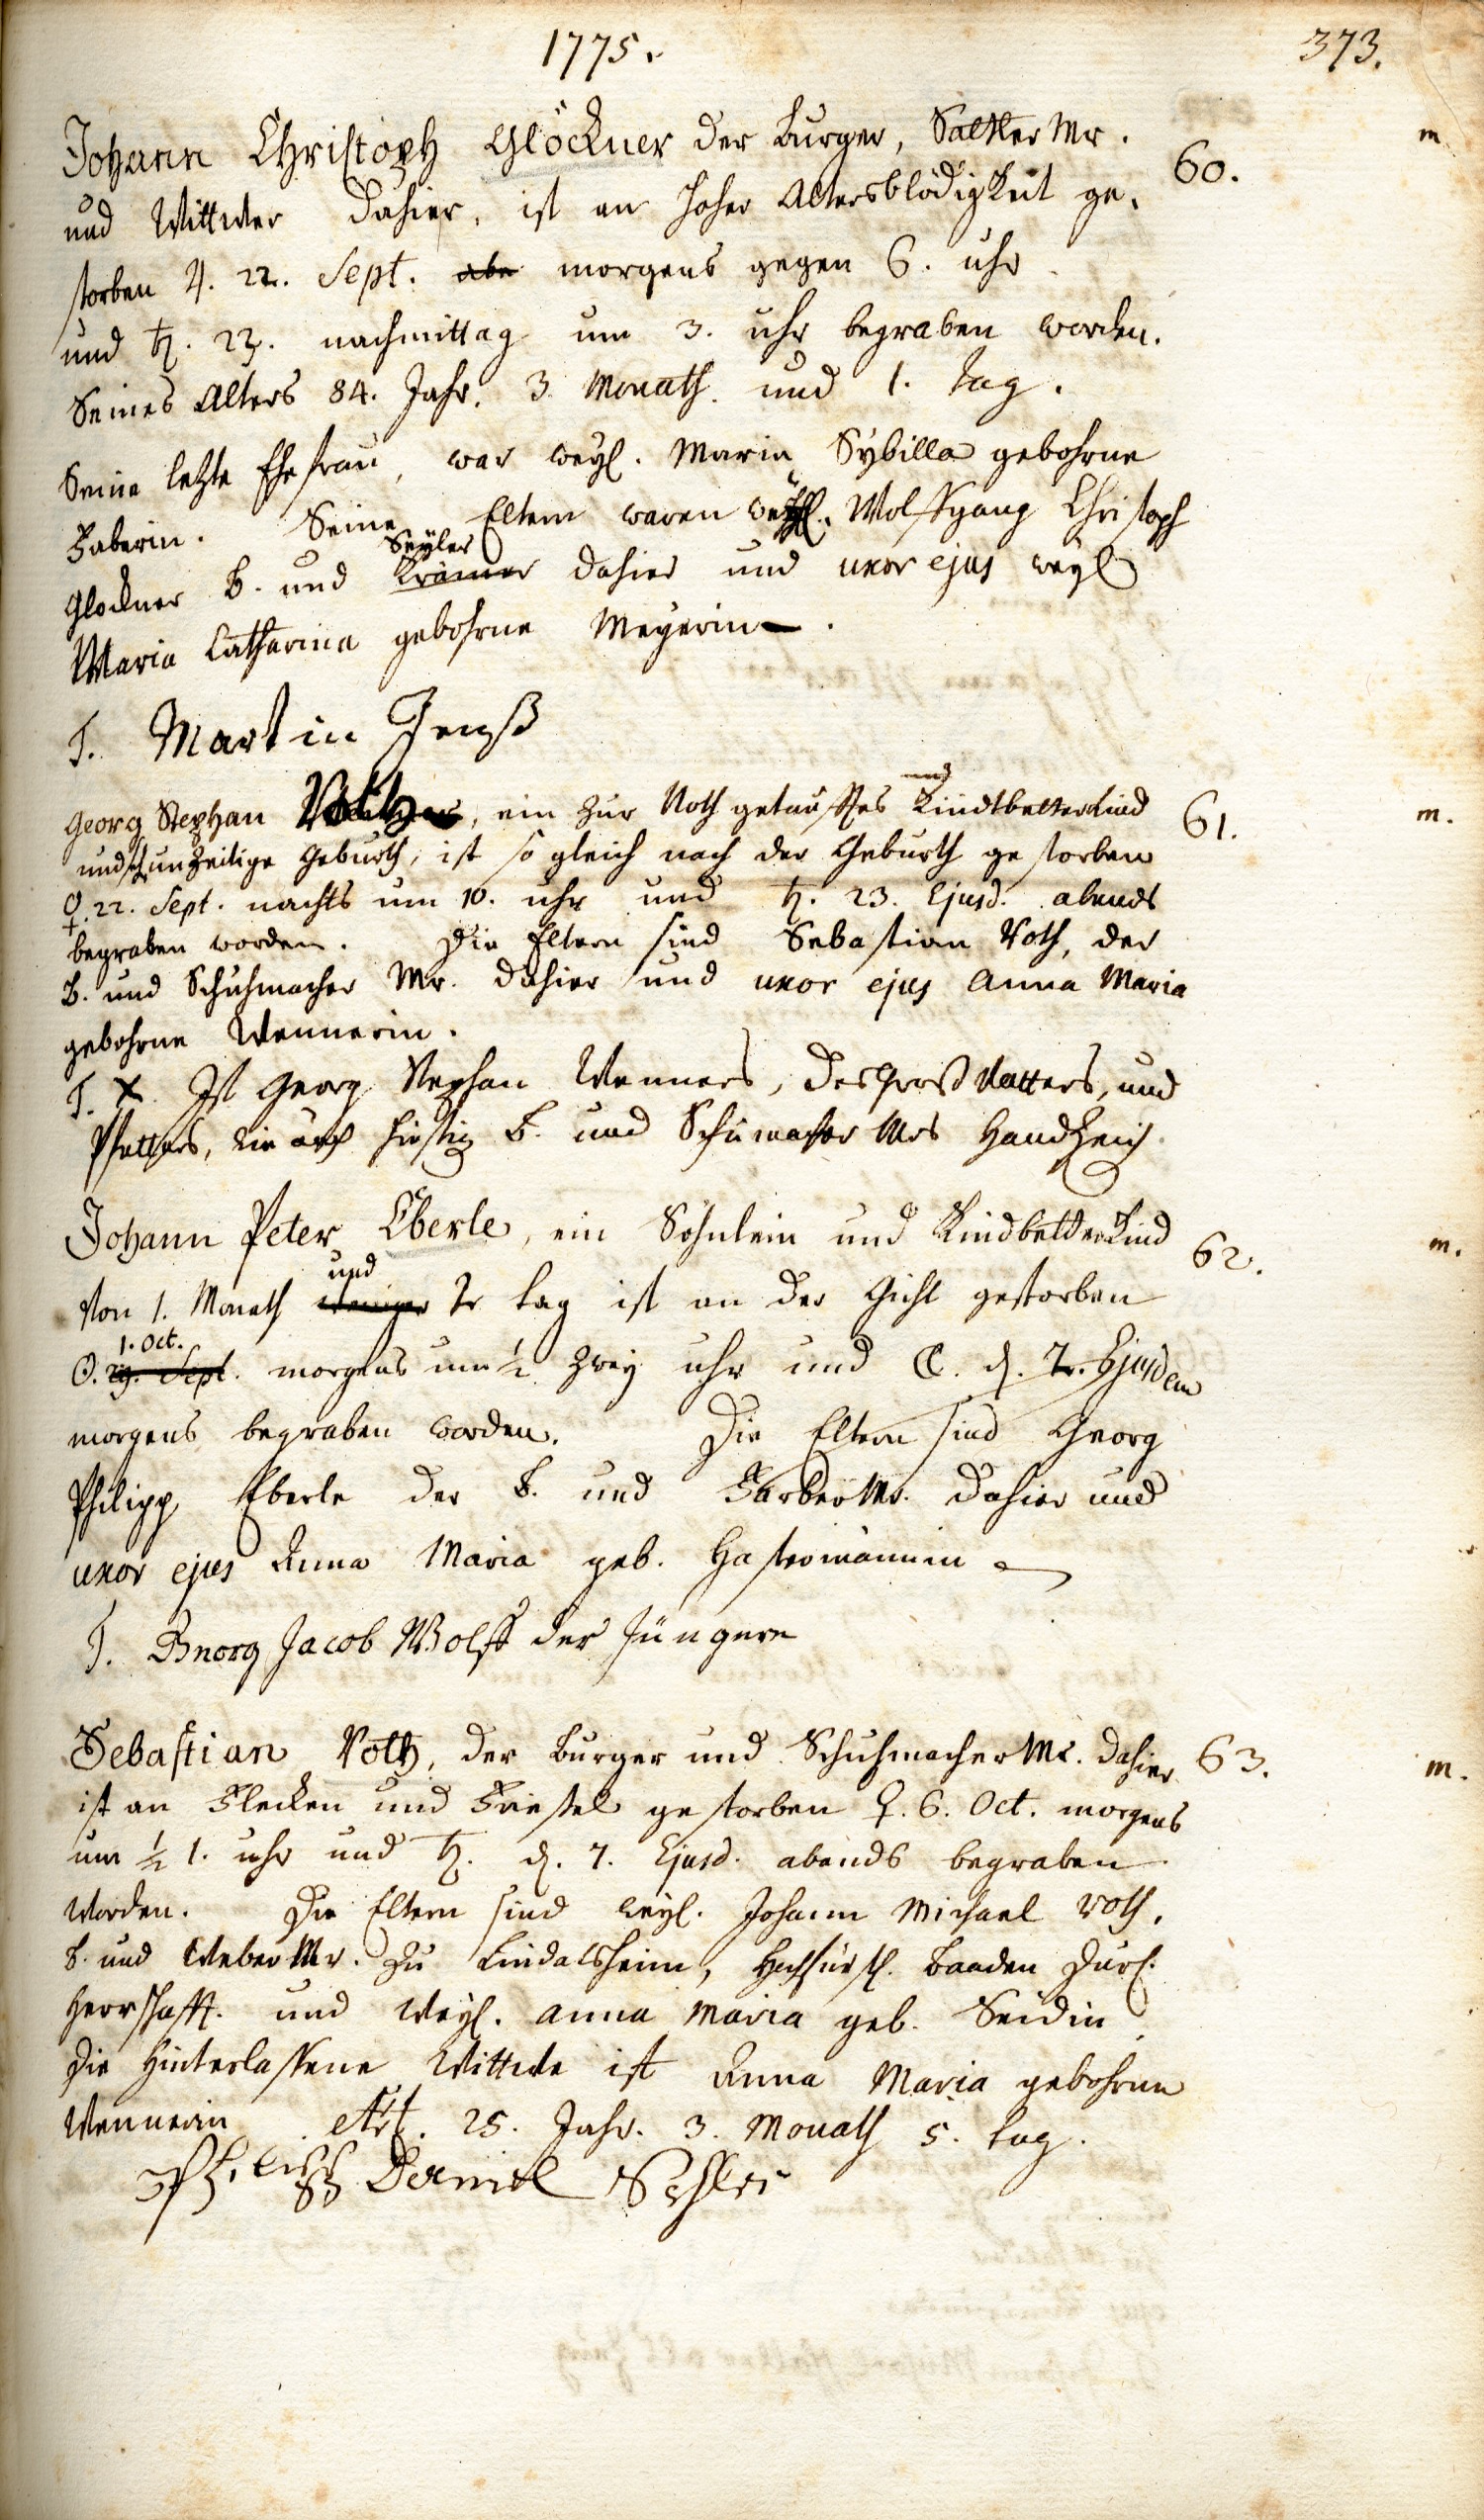 1775.
373.
Johann Christoph Glöckner der Burger, Sattler Mr.
60.
m
und Wittwer dahier, ist an hoher Altersblödigkeit ge-
storben ♃. 22. Sept. abe morgens gegen 6. uhr
und ♄. 23. nachmittag um 3. uhr begraben worden.
Seines Alters 84. Jahr. 3 Monath. und 1. Tag.
Seine letzte Ehefrau, war weyl. Maria Sybilla gebohrne
Faberin. Seine Eltern waren weyl. Wolffgang Christoph
Seyler
Glockner B. und Krämer dahier und uxor ejus weyl
Maria Catharina gebohrne Meyerin.
T. Martin
Georg Stephan, ein zur Noth getaufftes Kindtbetterkind
61.
m.
und unzeitige Geburth, ist so gleich nach der Geburth gestorben
♀. 22. Sept. nachts um 10. uhr und ♄. 23. Ejusd. abends
begraben worden. Die Eltern sind Sebastian Voth, der
B. und Schuhmacher Mr. dahier und uxor ejus Anna Maria
gebohrne Wennerin.
T. X Ist Georg Stephan Wenners, des Groß Vatters, und
Pfetters, hiesig B. und Schumacher Mrs Handzeich
Johann Peter Eberle, ein Söhnlein und Kindbetterkind
62.
m.
und
von 1. Monath weniger 2 tag ist an der Gicht gestorben
1. Oct.
☉. 29. Sept. morgens um ½ zwey uhr und ☾. d. 2. Ejusdem
morgens begraben worden. Die Eltern sind Georg
Philipp Eberle der B. und Färber Mr. dahier und
uxor ejus Anna Maria geb. Hastromännin
T. Georg Jacob Wolff der Jüngere
Sebastian Voth, der Burger und Schuhmacher Mr. dahier
63.
m.
ist an Flecken und Friesel gestorben ♀. 6. Oct. morgens
um ½ 1. uhr und ♄. d. 7. Ejusd. abends begraben
worden. Die Eltern sind weyl. Johann Michael Voth,
B. und Weber Mr. zu Liedolsheim, Hochfürstl. Baaden Durl.
Herrschafft. und weyl. Anna Maria geb. Seidin
Die Hinterlassene Wittwe ist Anna Maria gebohrne
Wennerin. Aet. 25. Jahr. 3. Monath 5. tag.
Philipp Daniel